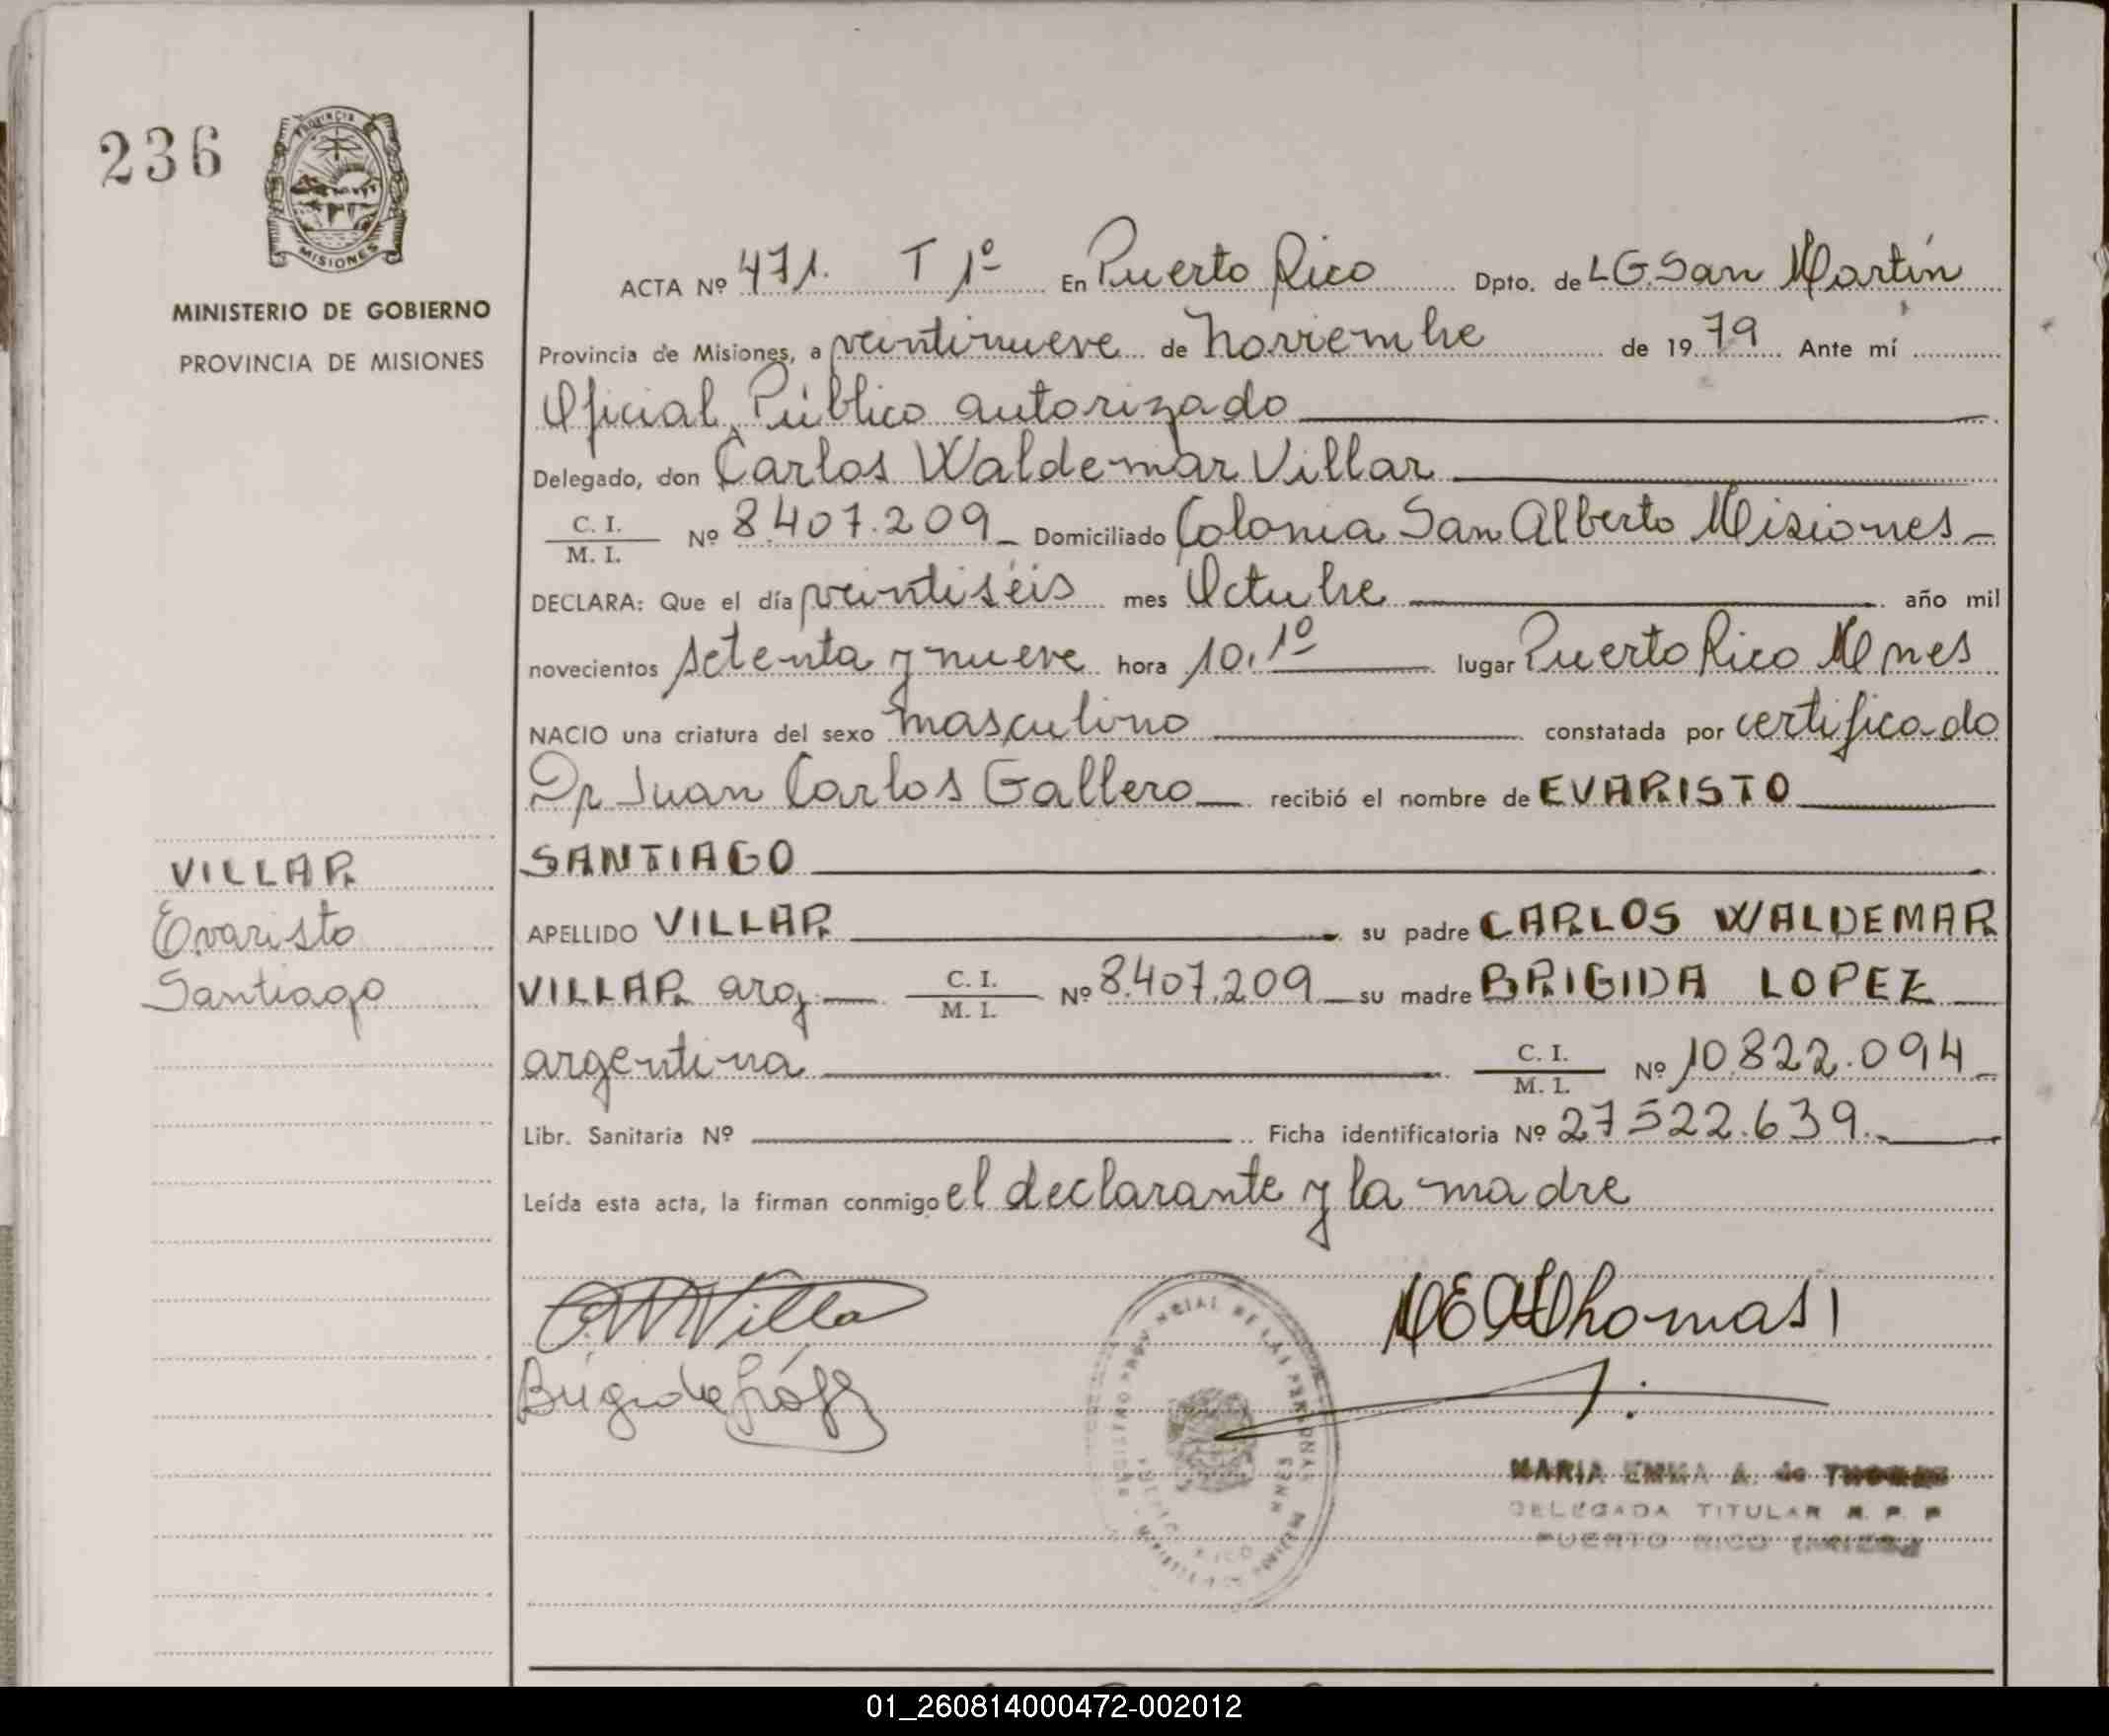 236
PROVINCIA
MISIONES
MINISTERIO DE GOBIERNO
PROVINCIA DE MISIONES
ACTA Nº 471. T 1º En Puerto Rico Dpto. de L G. San Martín
Provincia de Misiones, a veintinueve de Noviembre de 1979 Ante mí
Oficial Público autorizado
Delegado, don Carlos Waldemar Villar
C. I. / M. I. Nº 8.407.209 Domiciliado Colonia San Alberto Misiones
DECLARA: Que el día veintiséis mes Octubre año mil
novecientos setenta y nueve hora 10,1º lugar Puerto Rico Mnes
NACIO una criatura del sexo masculino constatada por certificado
Dr Juan Carlos Gallero recibió el nombre de EVARISTO
SANTIAGO
VILLAR
Evaristo
Santiago
APELLIDO VILLAR su padre CARLOS WALDEMAR
VILLAR arg. C. I. / M. I. Nº 8.407.209 su madre BRIGIDA LOPEZ
argentina C. I. / M. I. Nº 10.822.094
Libr. Sanitaria Nº Ficha identificatoria Nº 27522.639.
Leída esta acta, la firman conmigo el declarante y la madre
Villa
Brígida López
Thomas
MARIA EMMA A. de
DELEGADA TITULAR R. P. P
PUERTO RICO
01_260814000472-002012